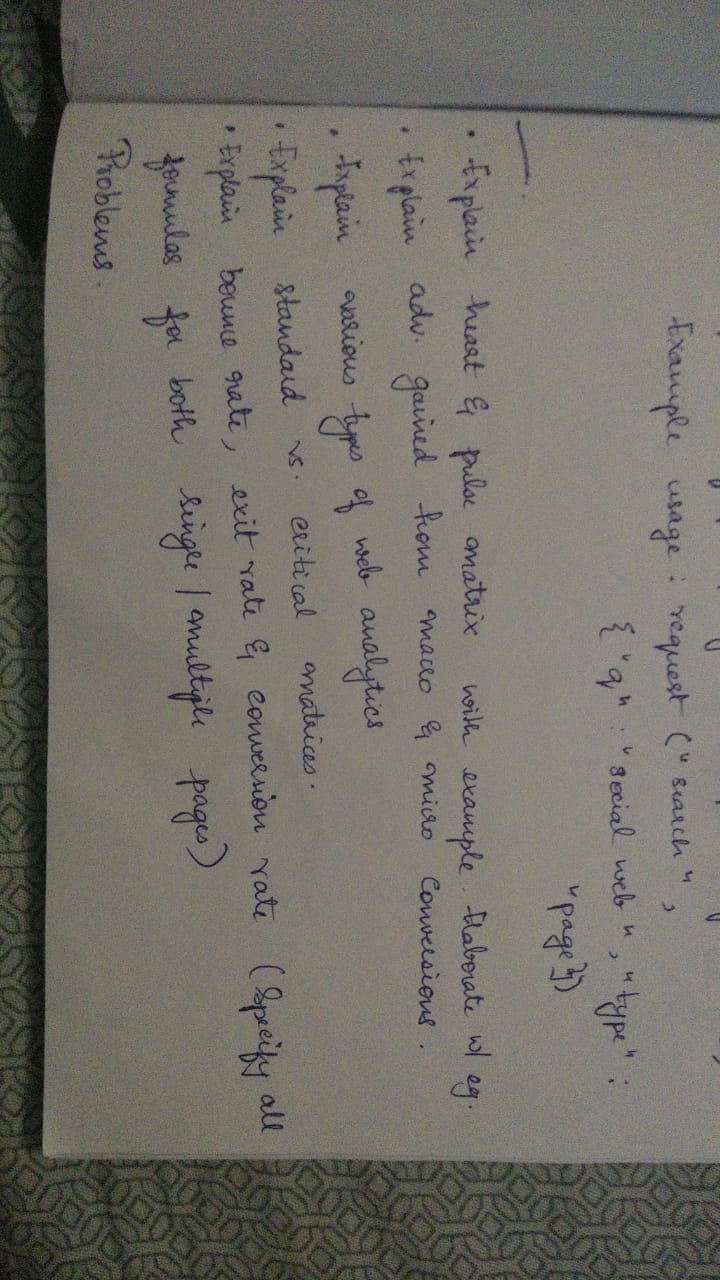 Example usage : request ("search",
{"q" : "social web", "type" :
"page"})
• Explain heart & pulse matrix with example. Elaborate w/ eg.
• Explain adv. gained from macro & micro conversions.
• Explain various types of web analytics
• Explain standard vs. critical matrices.
• Explain bounce rate, exit rate & conversion rate (Specify all
formulas for both single / multiple pages)
Problems.